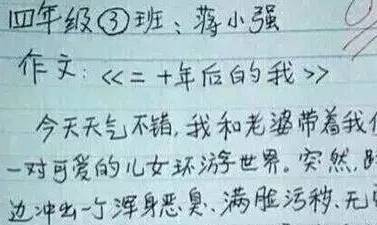 四年级③班：蒋小强
作文：《二十年后的我》
今天天气不错，我和老婆带着我
一对可爱的儿女环游世界。突然，
边冲出一个浑身恶臭、满脏污秽、无